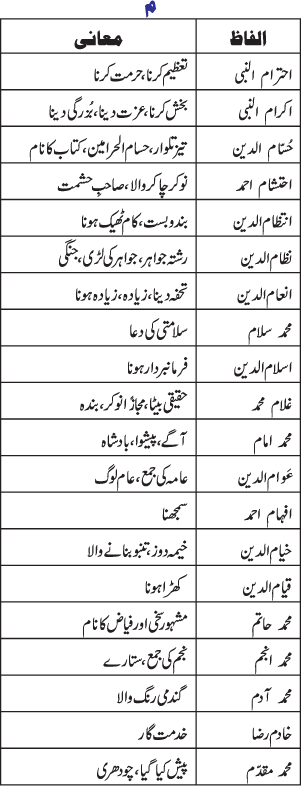 م
الفاظ معانی
احترام النبی تعظیم کرنا، حرمت کرنا
اکرام النبی بخشش کرنا، عزت دینا، بُزرگی دینا
حُسّام الدین تیز تلوار، حسام الحرامین، کتاب کا نام
احتشام احمد نوکر چاکر والا، صاحبِ حشمت
انتظام الدین بندوبست، کام ٹھیک ہونا
نظام الدین رشتہ جواہر، جواہر کی لڑی، جنگی
انعام الدین تحفہ دینا، زیادہ، زیادہ ہونا
محمد سلام سلامتی کی دعا
اسلام الدین فرمانبردار ہونا
غلام محمد حقیقی بیٹا، مجازاً نوکر، بندہ
محمد امام آگے، پیشوا، بادشاہ
عَوام الدین عامہ کی جمع، عام لوگ
افہام احمد سمجھنا
خیام الدین خیمہ دوز، تنبو بنانے والا
قیام الدین کھڑا ہونا
محمد حاتم مشہور سخی اور فیاض کا نام
محمد انجم نجم کی جمع، ستارے
محمد آدم گندمی رنگ والا
خادم رضا خدمت گار
محمد مقدّم پیش کیا گیا، چودھری